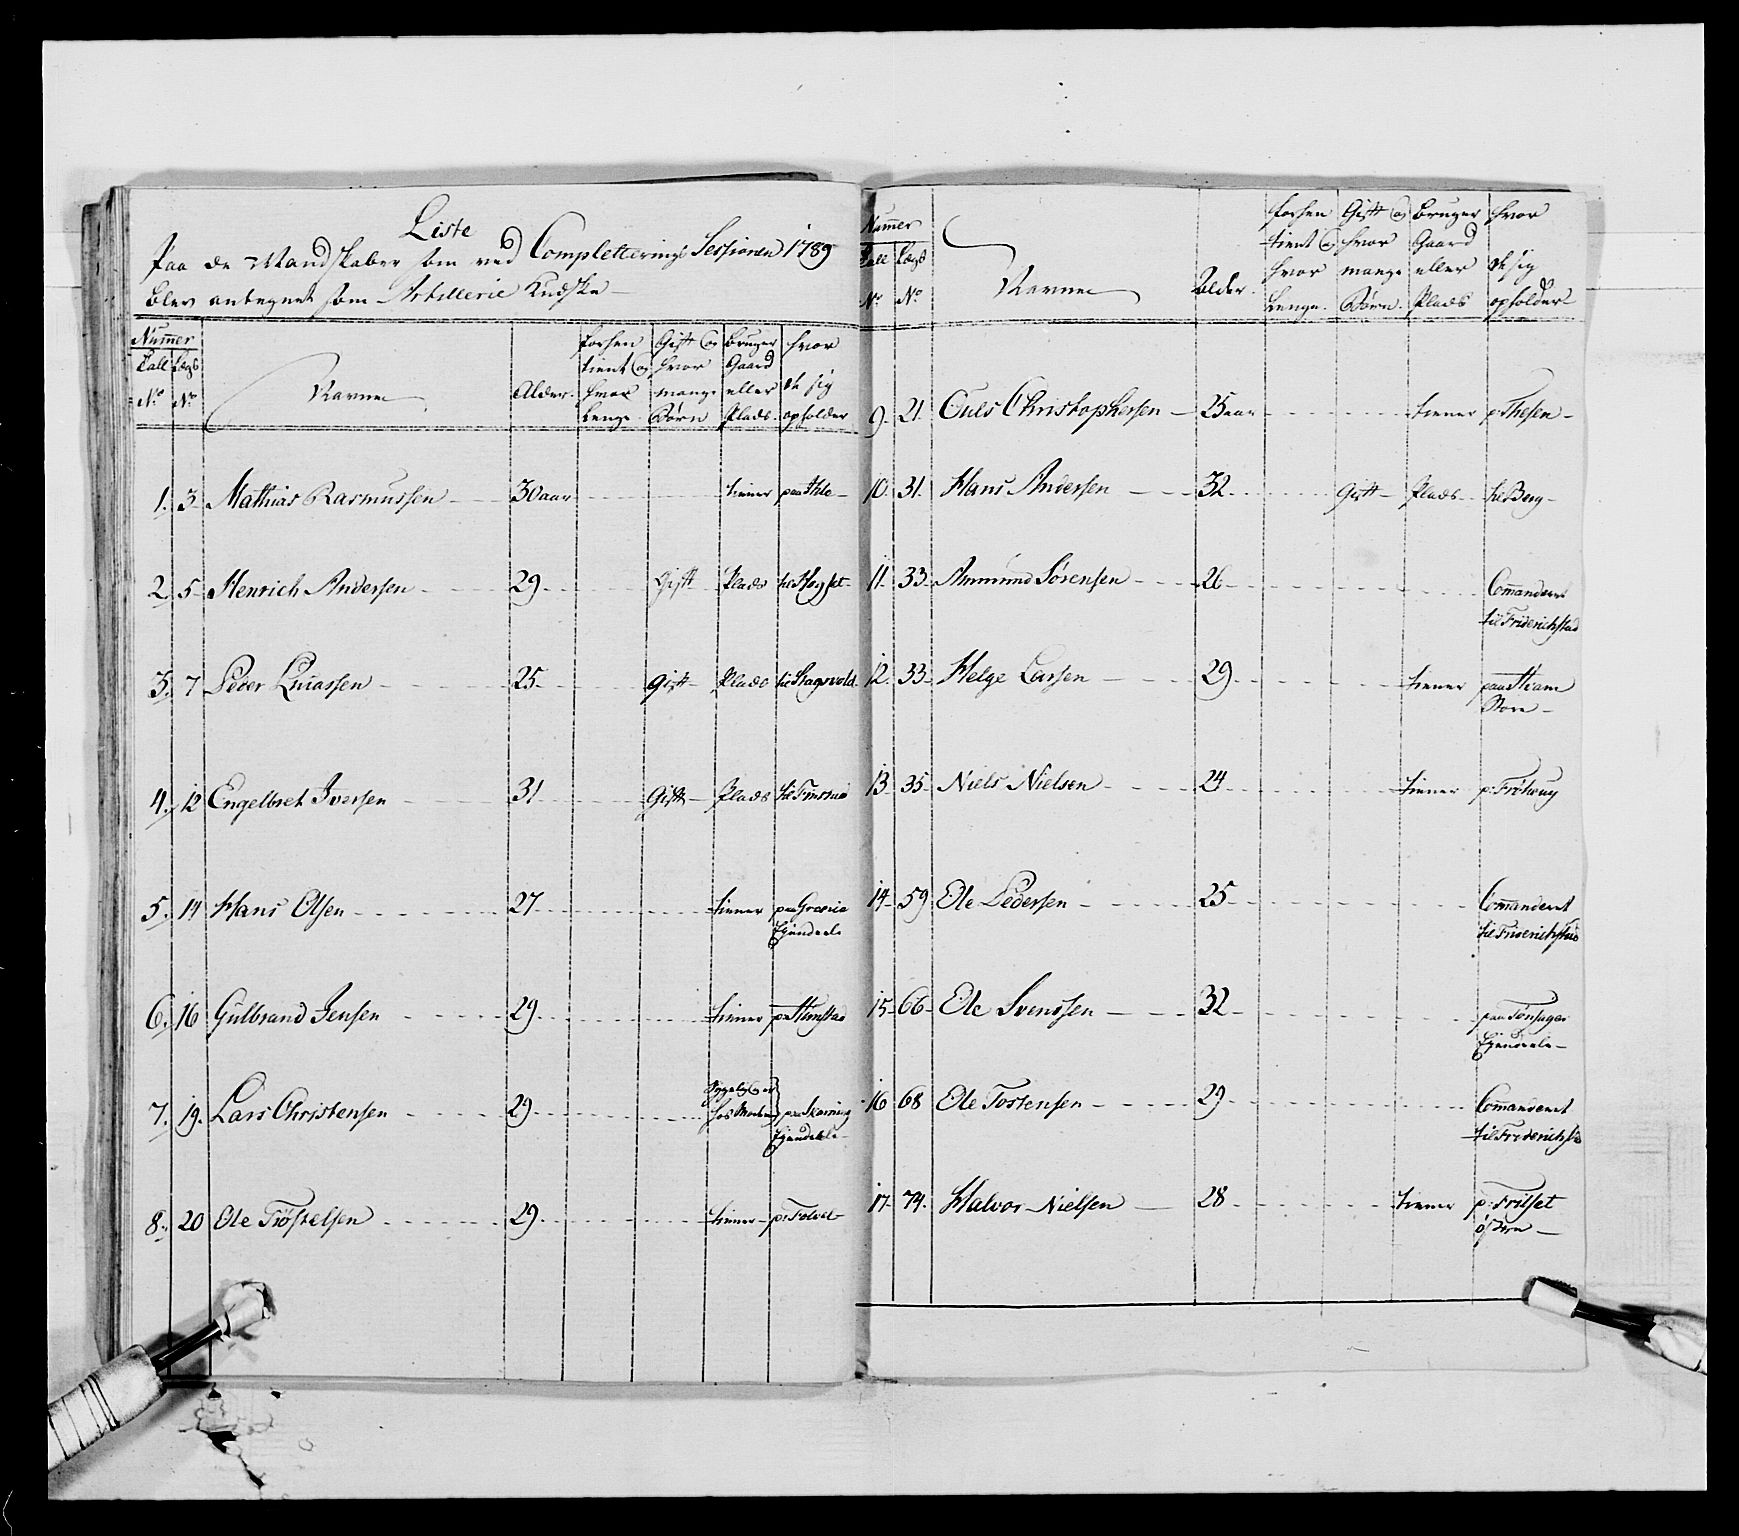 Liste
Paa de Mandskaber som ved Completterings Sessionen 1789
blev antegnet som Artillerie Kudske
Nummer
Tall Lægs
No No
Navne
Alder
forhen tient og hvor Lenge
Gift og hvor mange Børn
Bruger Gaard eller Plads
hvor de sig opholder
1. 3 Mathias Rasmussen 30 aar tiener paa
2. 5 Henrich Andersen 29 Gift Plads til
3. 7 Peder 25 Gift Plads til
4. 12 Engelbret Iversen 31 Gift Plads til
5. 14 Hans Olsen 27 tiener paa
Ejendeele
6. 16 Gulbrand Jensen 29 tiener
7. 19. Lars Christensen 29 hos paa
Ejendeele
8. 20 Ole 29 tiener p:
Nummer
Tall Lægs
No No
Navne
Alder
forhen tient og hvor Lenge.
Gift og hvor mange Børn.
Bruger Gaard eller Plads
hvor de sig opholder
9. 21. Christophersen 25 aar tiener p: Thesen
10. 31. Hans Andersen 32 Gift Plads til Berg
11. 33 Amund Sørensen 26 Commanderet
til Friderichstad
12. 33 Helge Larsen 29 tiener paa
Store
13. 35 Niels Nielsen 24 tiener p:
14. 59 Ole Pedersen 25 Commanderet
til Friderichstad
15. 66 Ole Svenssen 32 paa
Ejendeele
16 68 Ole Tostensen 29 Commanderet
til Friderichstad
17. 74. Halvor Nielsen 28 tiener p:
østre